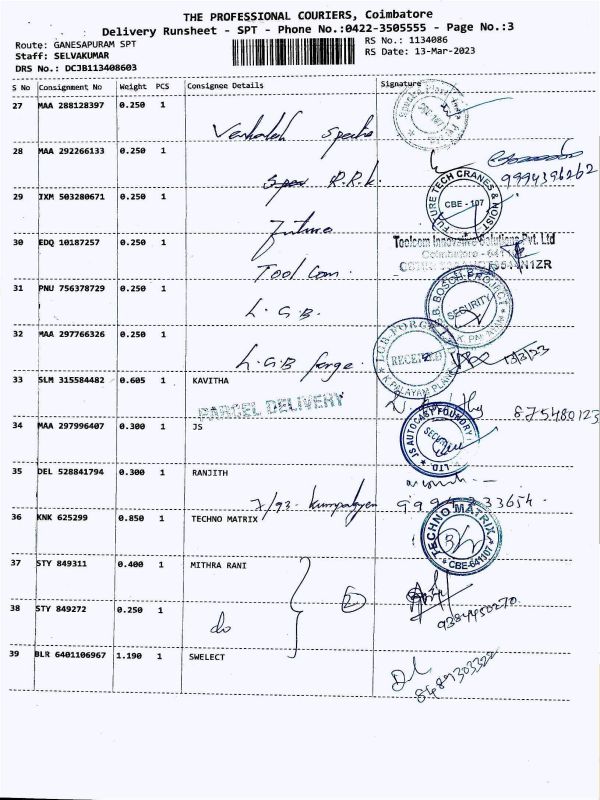 THE PROFESSIONAL COURIERS, Coimbatore
Delivery Runsheet - SPT - Phone No.:0422-3505555 - Page No.:3
Route: GANESAPURAM SPT
RS No.: 1134086
Staff: SELVAKUMAR
RS Date: 13-Mar-2023
DRS No.: DCJB113408603
S No Consignment No Weight PCS Consignee Details Signature
27 MAA 288128397 0.250 1
28 MAA 292266133 0.250 1
R.R.k.
9994396262
29 IXM 503280671 0.250 1
FUTURE TECH CRANES & HOIST
CBE - 107
Future
30 EDQ 10187257 0.250 1
Toolcom Innovative Solutions Pvt. Ltd
Coimbatore - 641
Tool Com.
31 PNU 756378729 0.250 1
L.G.B. BOSCH PROJECT
SECURITY
K. PALAYAM
L.G.B.
32 MAA 297766326 0.250 1
L.G.B FORGE LTD
RECEIVED
K PALAYAM PLANT
L.G.B forge.
13/3/23
33 SLM 315584482 0.605 1 KAVITHA
PARCEL DELIVERY
875480123
34 MAA 297996407 0.300 1 JS
JS AUTOCAST FOUNDRY
SECURITY
LTD
35 DEL 528841794 0.300 1 RANJITH
7/93
36 KNK 625299 0.850 1 TECHNO MATRIX
TECHNO MATRIX
CBE-641107
37 STY 849311 0.400 1 MITHRA RANI
2
38 STY 849272 0.250 1
do
9384450270
39 BLR 6401106967 1.190 1 SWELECT